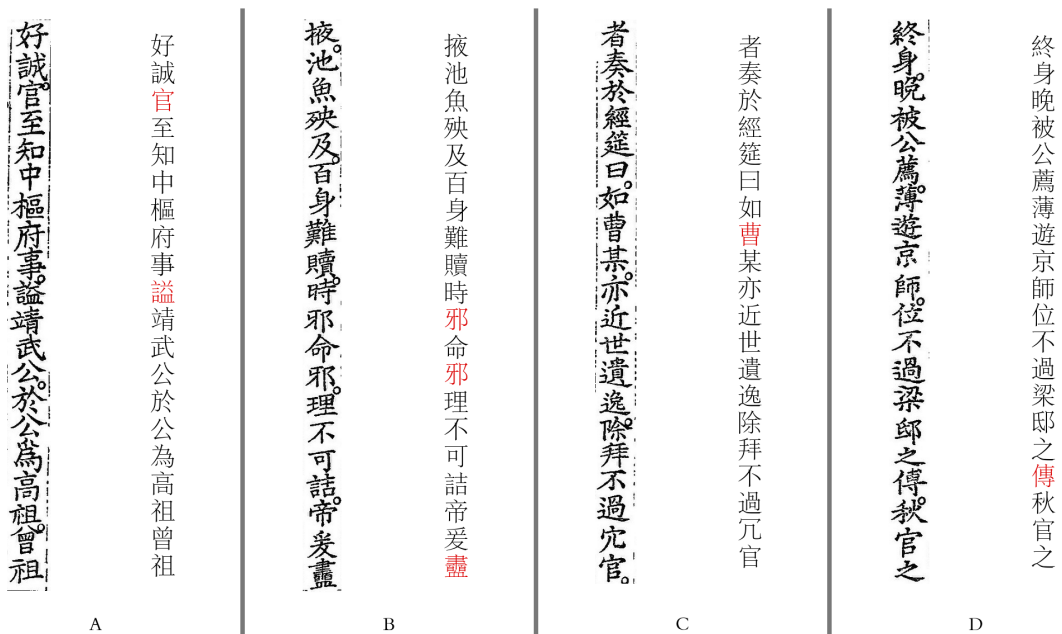 好誠官至知中樞府事謚靖武公於公爲高祖曾祖
好誠官至知中樞府事謚靖武公於公為高祖曾祖
A
掖池魚殃及百身難贖時邪命邪理不可詰帝爰衋
掖池魚殃及百身難贖時邪命邪理不可詰帝爰衋
B
者奏於經筵曰如曺某亦近世遺逸除拜不過冗官
者奏於經筵曰如曹某亦近世遺逸除拜不過冗官
C
終身晩被公薦薄遊京師位不過梁邸之傅秋官之
終身晚被公薦薄遊京師位不過梁邸之傳秋官之
D